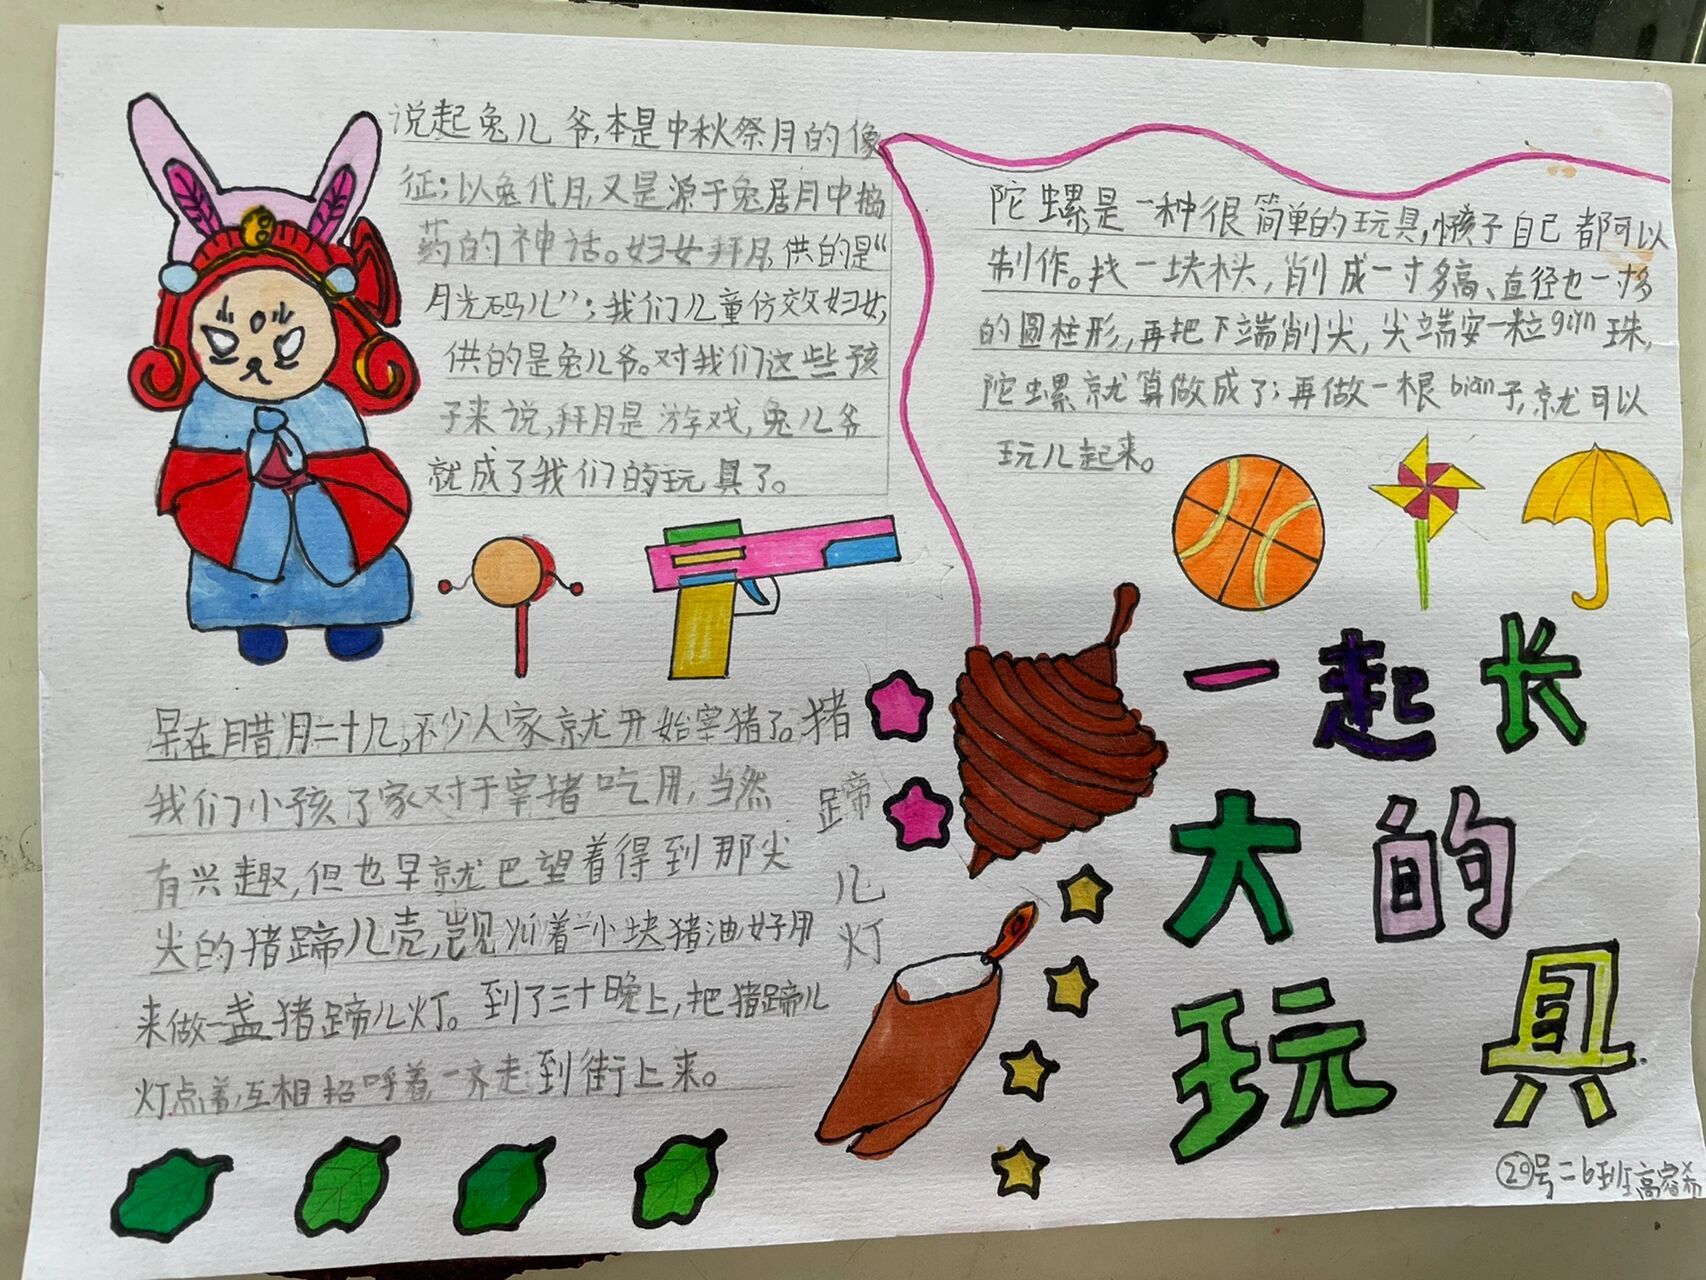 说起兔儿爷,本是中秋祭月的像
征;以兔代月,又是源于兔居月中捣
药的神话。妇女拜月,供的是“
月光码儿”;我们儿童仿效妇女,
供的是兔儿爷。对我们这些孩
子来说,拜月是游戏,兔儿爷
就成了我们的玩具了。
陀螺是一种很简单的玩具,懒孩子自己都可以
制作。找一块木头,削成一寸多高、直径也一寸多
的圆柱形,再把下端削尖,尖端安一粒gāng珠,
陀螺就算做成了;再做一根biān子,就可以
玩儿起来。
一起长
大的
玩具
早在腊月二十几,不少人家就开始宰猪了。
我们小孩了家对于宰猪吃用,当然
有兴趣,但也早就巴望着得到那尖
尖的猪蹄儿壳,着一小块猪油好用
来做一盏猪蹄儿灯。到了三十晚上,把猪蹄儿
灯点着,互相招呼着,一齐走到街上来。
猪
蹄
儿
灯
29号二6班高容希